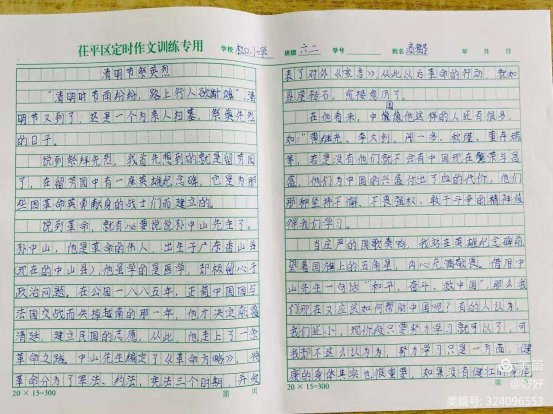 茌平区定时作文训练专用 学校 小学
清明节祭英烈
“清明时节雨纷纷，路上行人欲断魂”，清
明节又到了，这是一个为亲人扫墓，祭奠先烈
的日子。
说到祭拜先烈，我首先想到的就是留芳园
了，在留芳园中有一座英雄纪念碑，它是为那
些因革命英勇献身的战士们而建立的。
说到革命，就有必要说说孙中山先生了。
孙中山，他是革命的伟人，出生于广东香山县
（现在的中山县），他虽学的是医学，却极留心于
政治问题。在公园一八八五年，正值中国因与
法国交战而失掉越南的那一年，他才决定颠覆
清廷，建立民国的志愿，从此，他走上了一条
革命之路。中山先生编定了《革命方略》，将
革命分为了军法、约法、宪法三个时期，并发
20×15=300 第 页
班级 六二 学号 姓名 年 月 日
表了对外《宣言》从此认为革命的行动，就如
星星转石，愈接愈厉了。
在他看来，中国像他这样的人还有很多，
如：“黄继光、李大钊、闻一多、秋瑾、董存瑞
等，若是没有他们就不会有中国现在繁荣与富
强，他们为中国的兴盛付出了血的代价，他们
那种坚持不懈、不畏强权、敢于斗争的精神值
得我们学习。
当庄严的国歌奏响，我站在英雄纪念碑前
望着国旗上的五角星，内心充满敬畏。借用中
山先生一句话“和平、奋斗、救中国”，那么我
们现在又应该如何帮助中国呢？有的人认为，
我们还小，现阶段只要努力学习就可以了，可
我却不这么认为，努力学习只是一方面，健
康的身体其实也很重要，如果没有健壮的
20×15=300 第
美篇
@好好
美篇号: 324096553